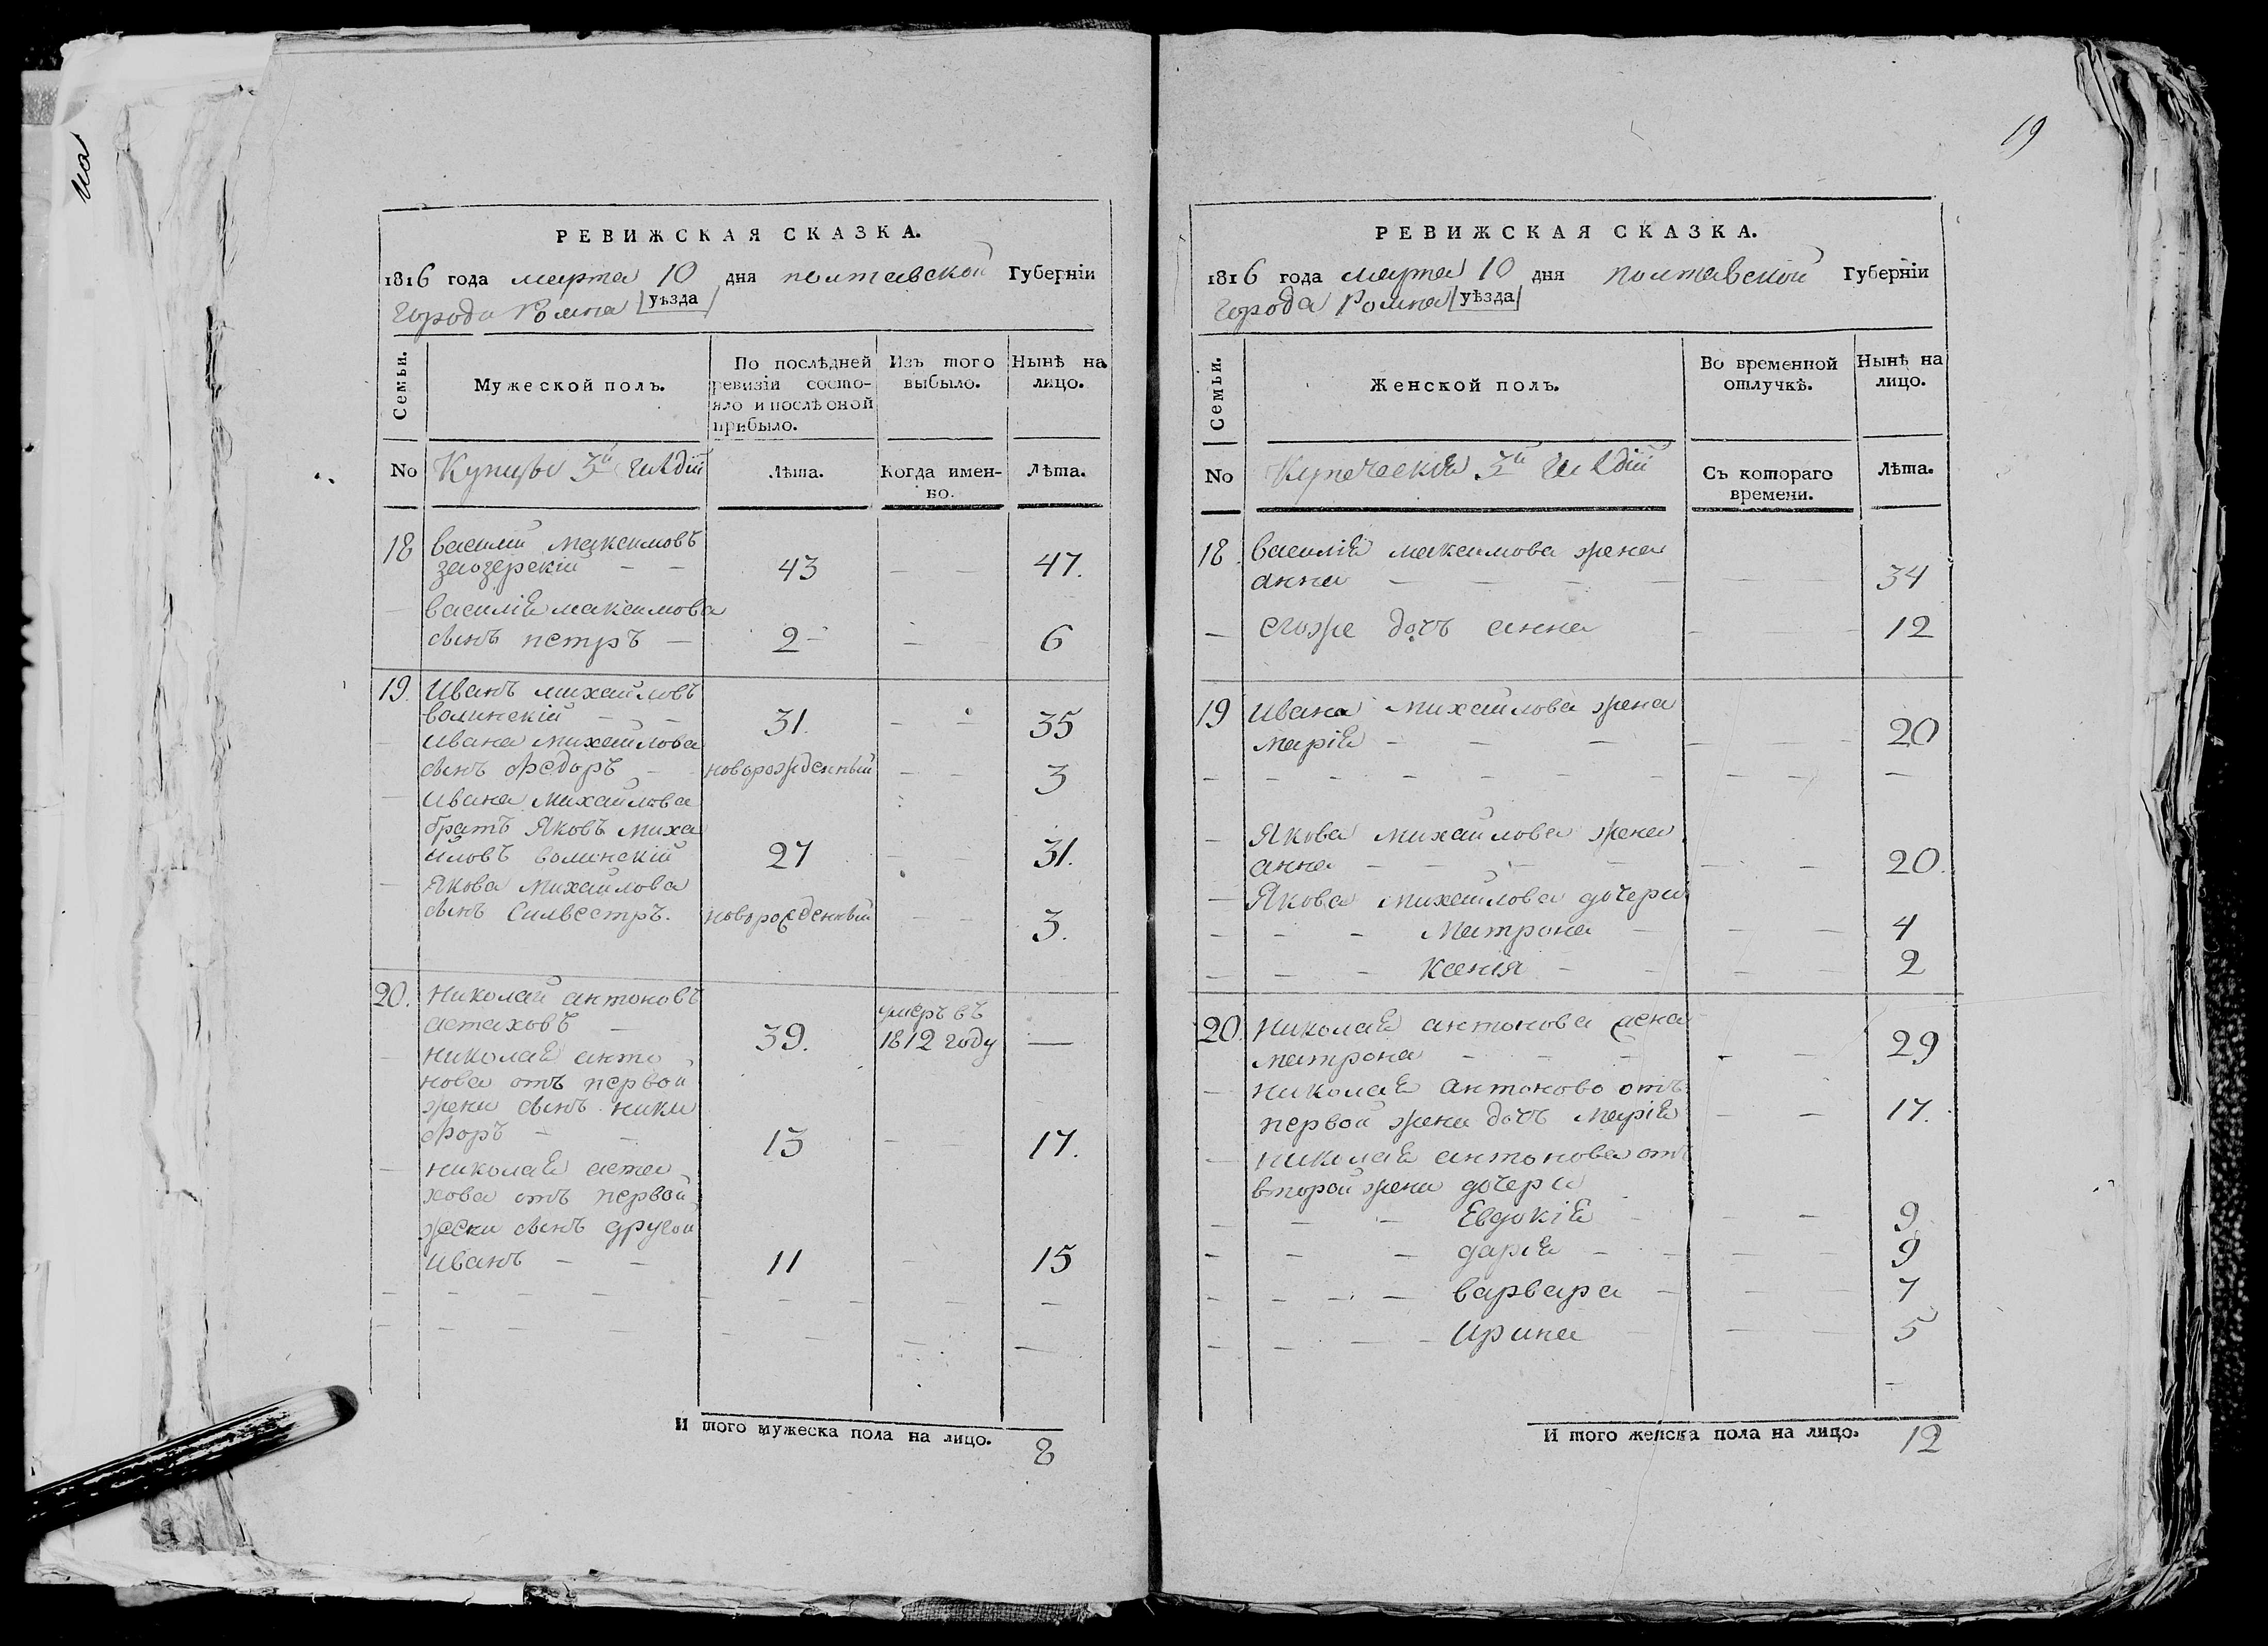 на
РЕВИЖСКАЯ СКАЗКА.
1816 года марта 10 дня полтавской Губерніи
города Ромна уѣзда
Семьи.
Мужеской полъ.
По послѣдней
ревизіи состо-
яло и послѣ оной
прибыло.
Изъ того
выбыло.
Нынѣ на
лицо.
No Купцы 3й гилдіи
Лѣта.
Когда имен-
но.
Лѣта.
18 василий максимовъ
заозерскій — — 43 — — 47.
— василіѧ максимова
сынъ петръ — 2 — — 6
19. Иванъ михайловъ
волинскій — — 31. — — 35
— ивана михайлова
сынъ федоръ — новорожденный — — 3
— ивана михайлова
братъ Яковъ миха
иловъ волинскій 27 — — 31.
— Якова михайлова
сынъ Силвестръ. новорожденный — — 3.
20. николай антоновъ
астаховъ — 39. умеръ въ
1812 году —
— николаѧ анто
нова отъ первой
жени сынъ ники
форъ — — 13 — — 17.
— николаѧ аста
хова отъ первой
жени сынъ другой
иванъ — — 11 — 15
И того мужеска пола на лицо. 8
19
РЕВИЖСКАЯ СКАЗКА.
1816 года марта 10 дня полтавской Губерніи
города Ромна уѣзда
Семьи.
Женской полъ.
Во временной
отлучкѣ.
Нынѣ на
лицо.
No Купеческіѧ 3й гилдіи
Съ котораго
времени.
Лѣта.
18. василіѧ максимова жена
анна — — — — 34
— егоже дочь анна — — 12
19 ивана михайлова жена
маріѧ — — — — — — 20
— — — — — — — — — —
— Якова михайлова жена
анна — — — — — — 20.
— Якова михайлова дочери
— — — Матрона — — — 4
— — — Ксенія — — — — 2
20. николаѧ антонова жена
матрона — — — — — 29
— николаѧ антоново отъ
первой жени дочь маріѧ — — 17.
— николаѧ антонова отъ
второй жени дочери
— — — Евдокіѧ — — — 9
— — — даріѧ — — — — 9
— — — — варвара — — — 7
— — — — Ирина — — — 5
И того женска пола на лицо. 12